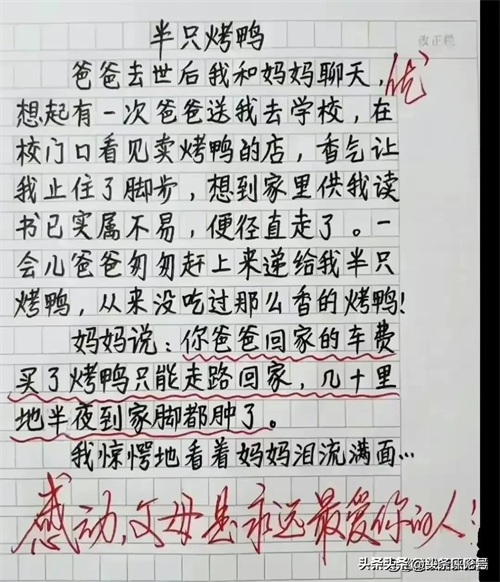 半只烤鸭
改正栏
爸爸去世后我和妈妈聊天,
优
想起有一次爸爸送我去学校，在
校门口看见卖烤鸭的店，香气让
我止住了脚步，想到家里供我读
书已实属不易，便径直走了。一
会儿爸爸匆匆赶上来递给我半只
烤鸭，从来没吃过那么香的烤鸭!
妈妈说：你爸爸回家的车费
买了烤鸭只能走路回家，几十里
地半夜到家脚都肿了。
我惊愕地看着妈妈泪流满面…
感动,父母是永远最爱你的人!
头条